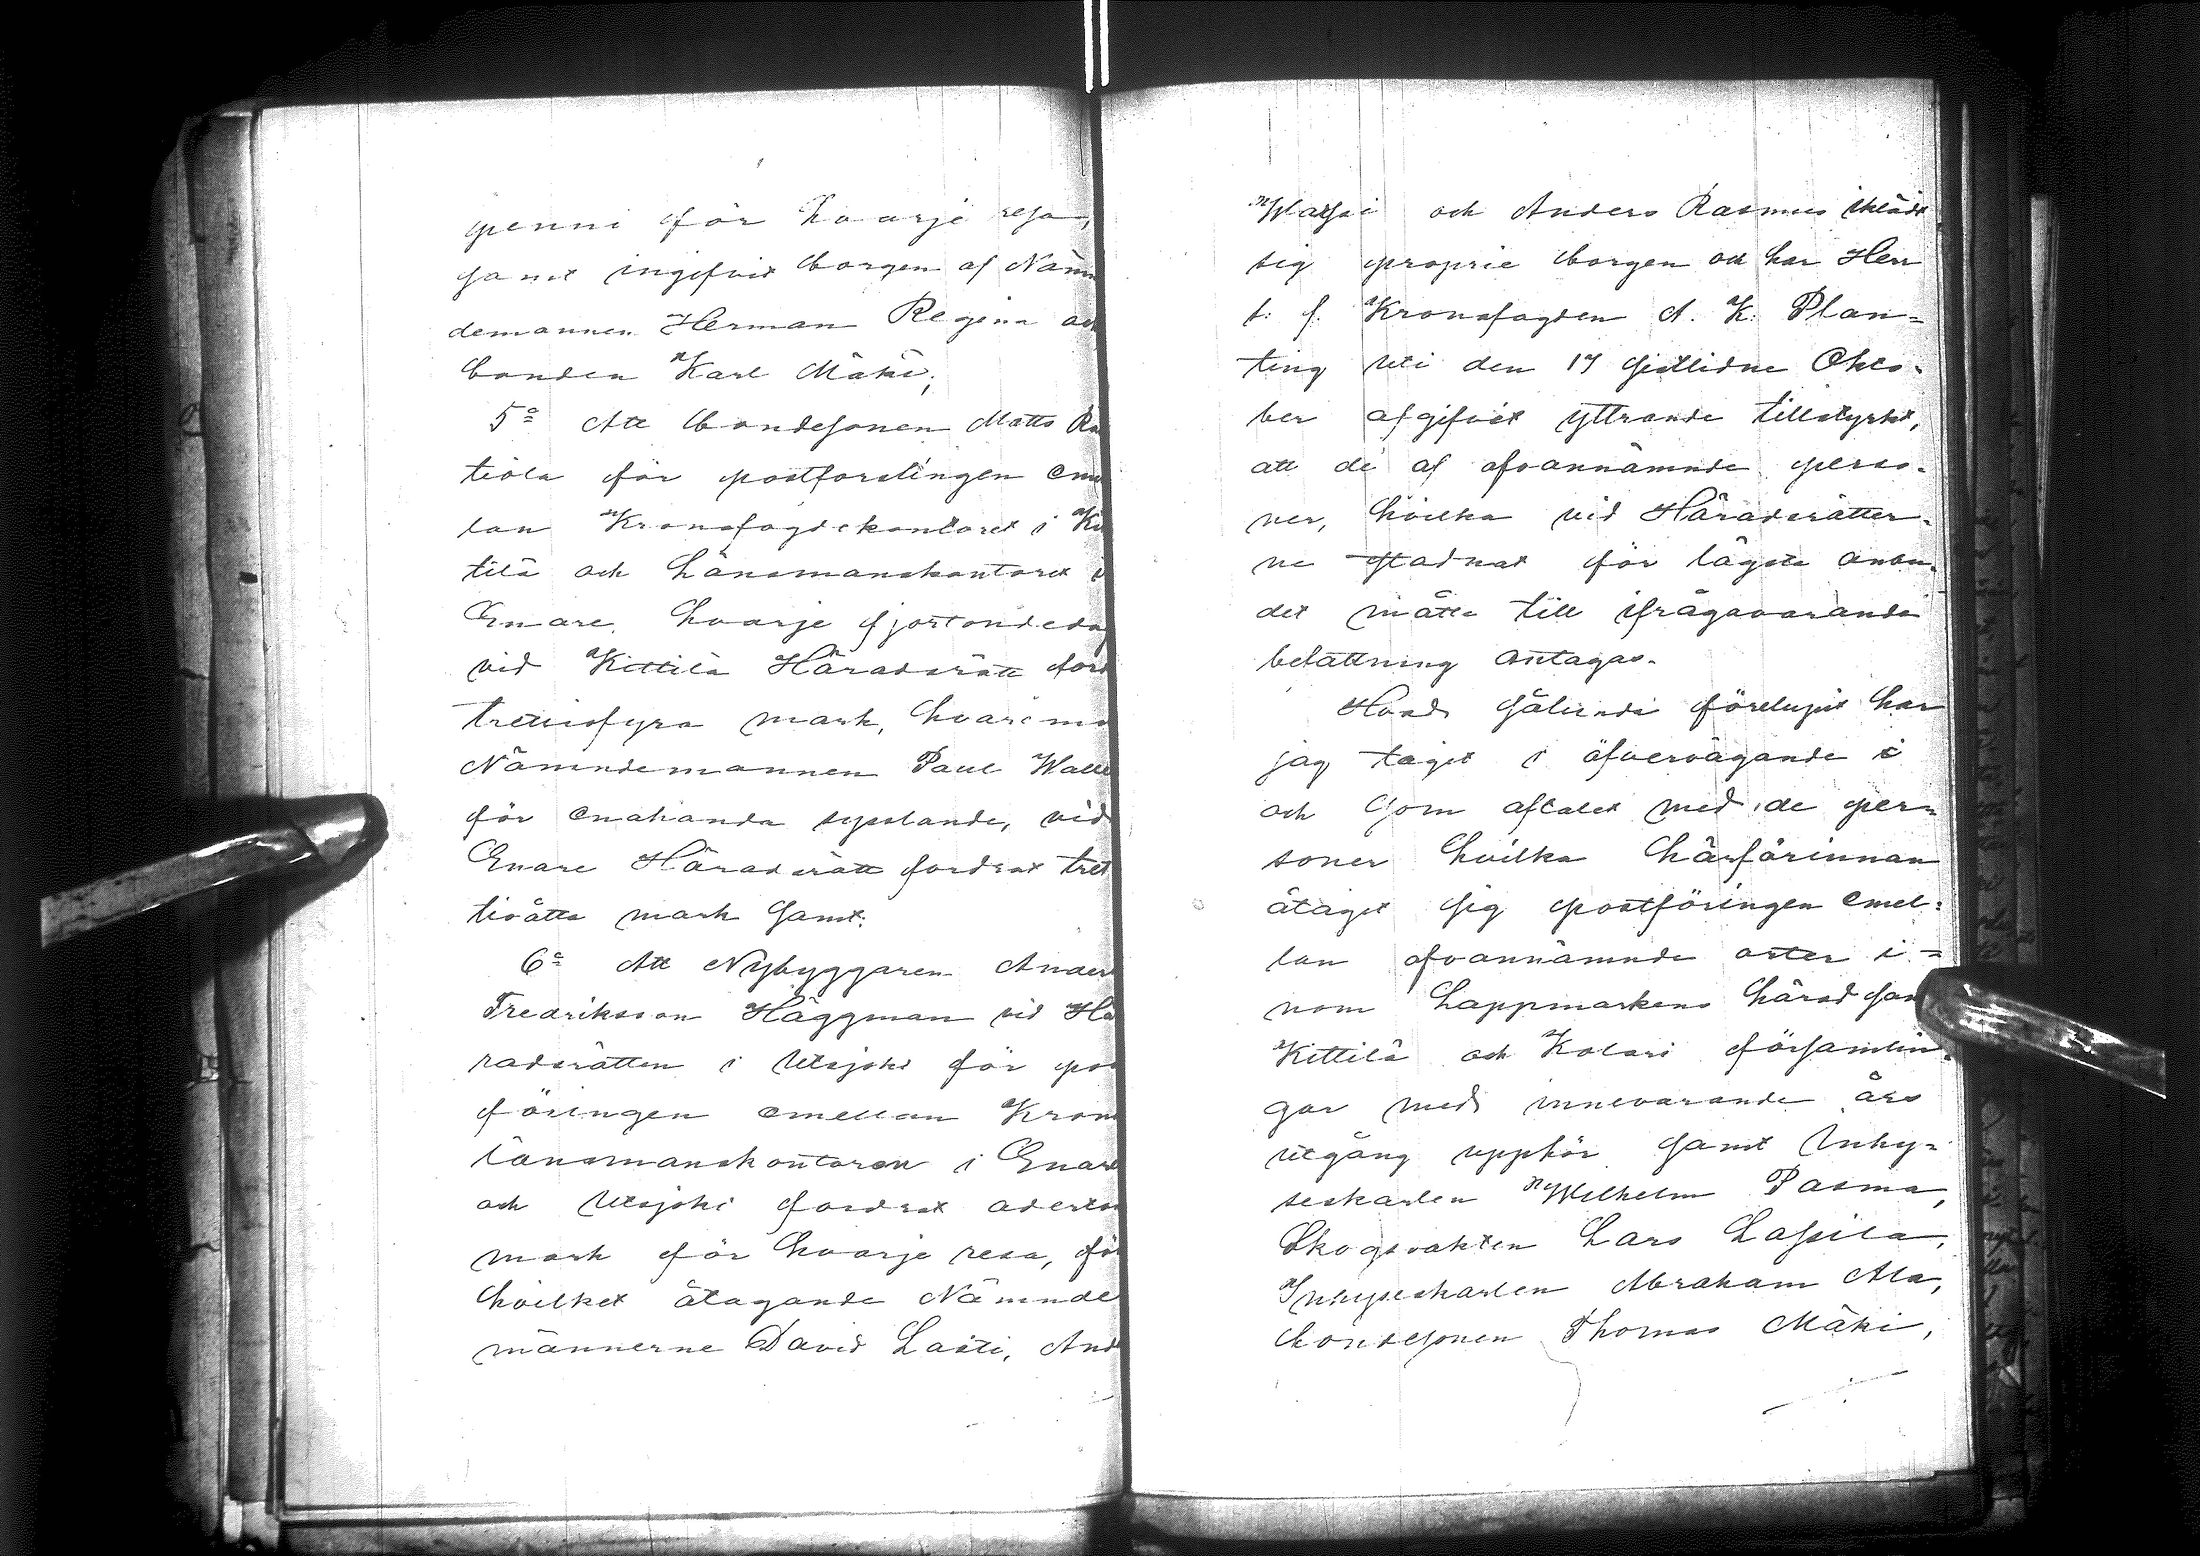 penni för hvarje resa,
samt ingifvit borgen af Näm
demannen Herman Regina och
bonden Karl Mäki;
5o Att bondesonen Matts Ra
tiola för postforslingen eme
lan Kronofogdekontoret i Ki
tilä och Länsmanskontoret i
Enare, hvarje fjortondeda
vid Kittilä Häradsrätt ford
trettiofyra mark, hvaremo
Nämndemannen Paul Walle
för enahanda sysslande, vid
Enare Häradsrätt fordrat tret
tioåtta mark samt;
6o Att Nybyggaren Ander
Fredriksson Häggman vid Hä
radsrätten i Utsjoki för pos
föringen emellan Krono
länsmanskontoren i Enare
och Utsjoki fordrat aderto
mark för hvarje resa, för
hvilket åtagande Nämnde
männerne David Lasti, And
och Anders Rasmus iklädt
sig proprie borgen och har Herr
t. f. Kronofogden A. K. Plan=
ting uti den 17 sistlidne Okto-
ber afgifvet yttrande tillstyrkt,
att de af ofvannämnde perso-
ner, hvilka vid Häradsrätter-
ne stadnat för lägsta anbu-
det måtte till ifrågavarande
befattning antagas.
Hvad sålunda förelupit har
jag tagit i öfvervägande i
och som aftalet med de per=
soner hvilka härförinnan
åtagit sig postföringen emel=
lan ofvannämnde orter i=
nom Lappmarkens härad sam
Kittilä och Kolari församlin-
gar med innevarande års
utgång upphör samt Inhy=
seskarlen Wilhelm Pasma,
Skogsvakten Lars Lassila,
Inhyseskarlen Abraham Ala,
bondesonen Thomas Mäki,